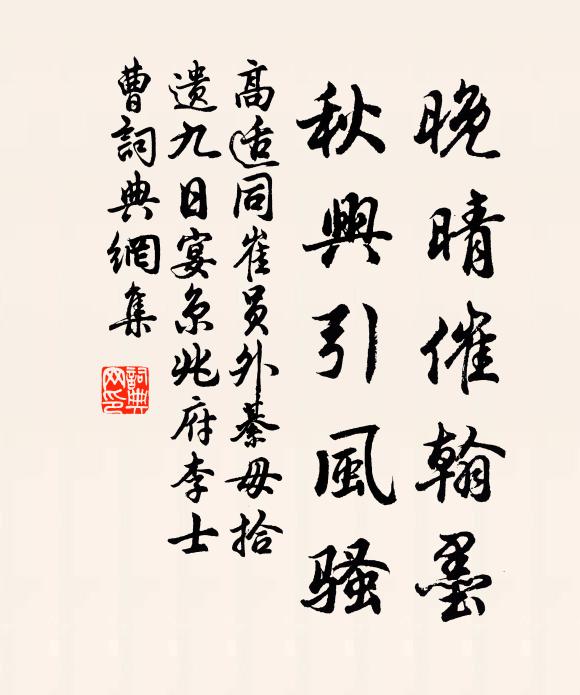 晚晴催翰墨
秋興引風騷
高适同崔員外綦毋拾
遗九日宴京兆府李士
曹詞典網集
詞典
网印